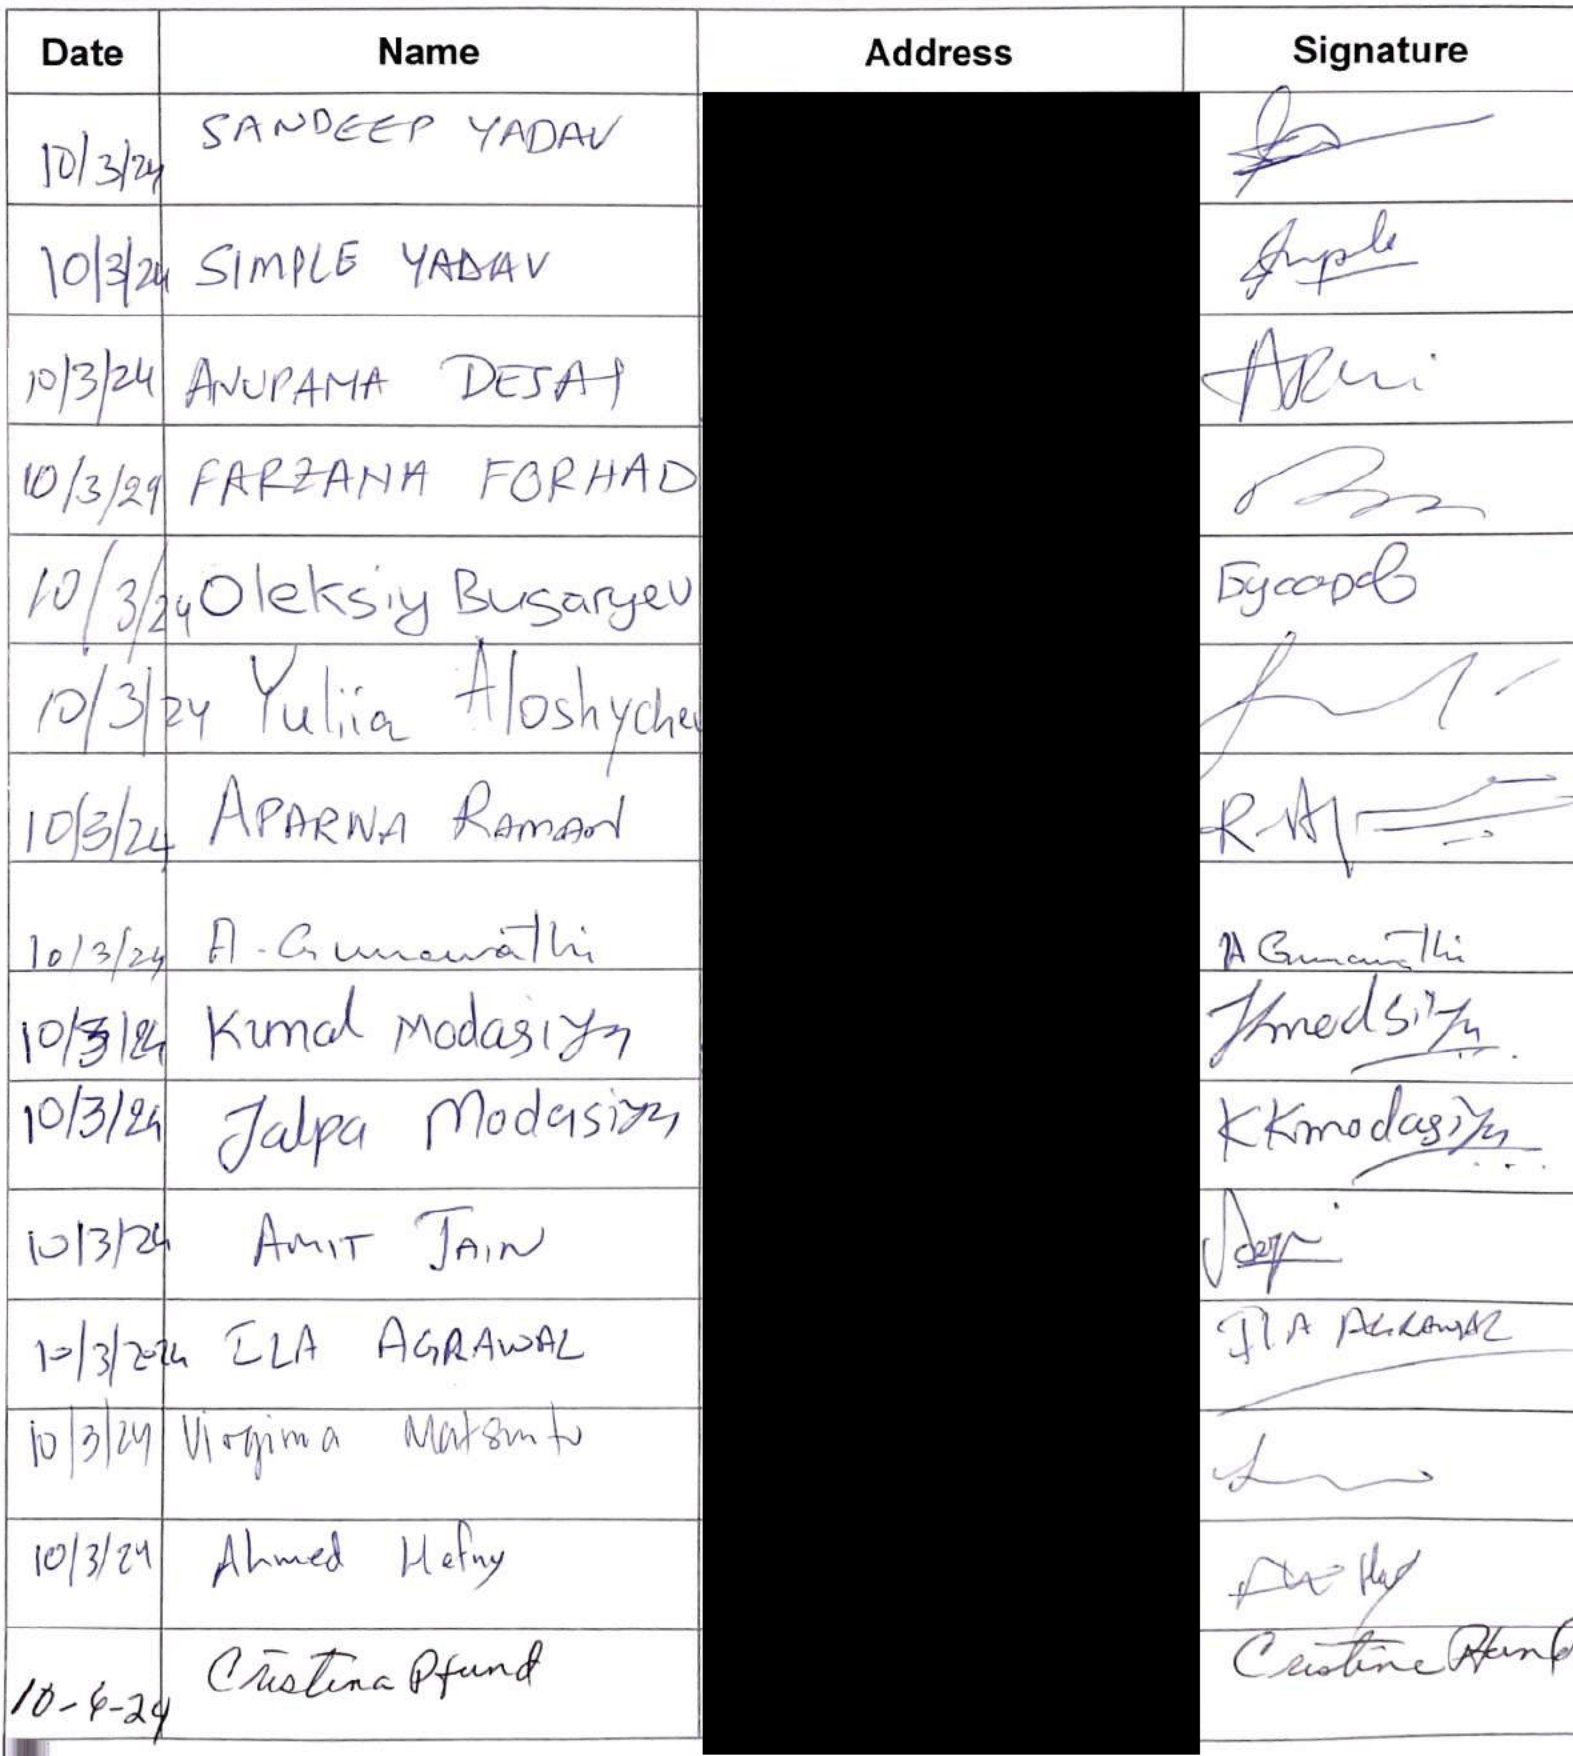 Date Name Address Signature
10/3/24 SANDEEP YADAV
10/3/24 SIMPLE YADAV Simple
10/3/24 ANUPAMA DESAI
10/3/24 FARZANA FORHAD
10/3/24 Oleksiy Busaryev
10/3/24 Yuliia Aloshychev
10/3/24 APARNA RAMAN
10/3/24 A. Gunawathi A Gunawathi
10/3/24 Kunal Modasiya
10/3/24 Jalpa Modasiya KKmodasiya
10/3/24 AMIT JAIN
10/3/2024 ILA AGRAWAL ILA AGRAWAL
10/3/24 Virginia
10/3/24 Ahmed Hefny
10-4-24 Cristina Pfund Cristina Pfund